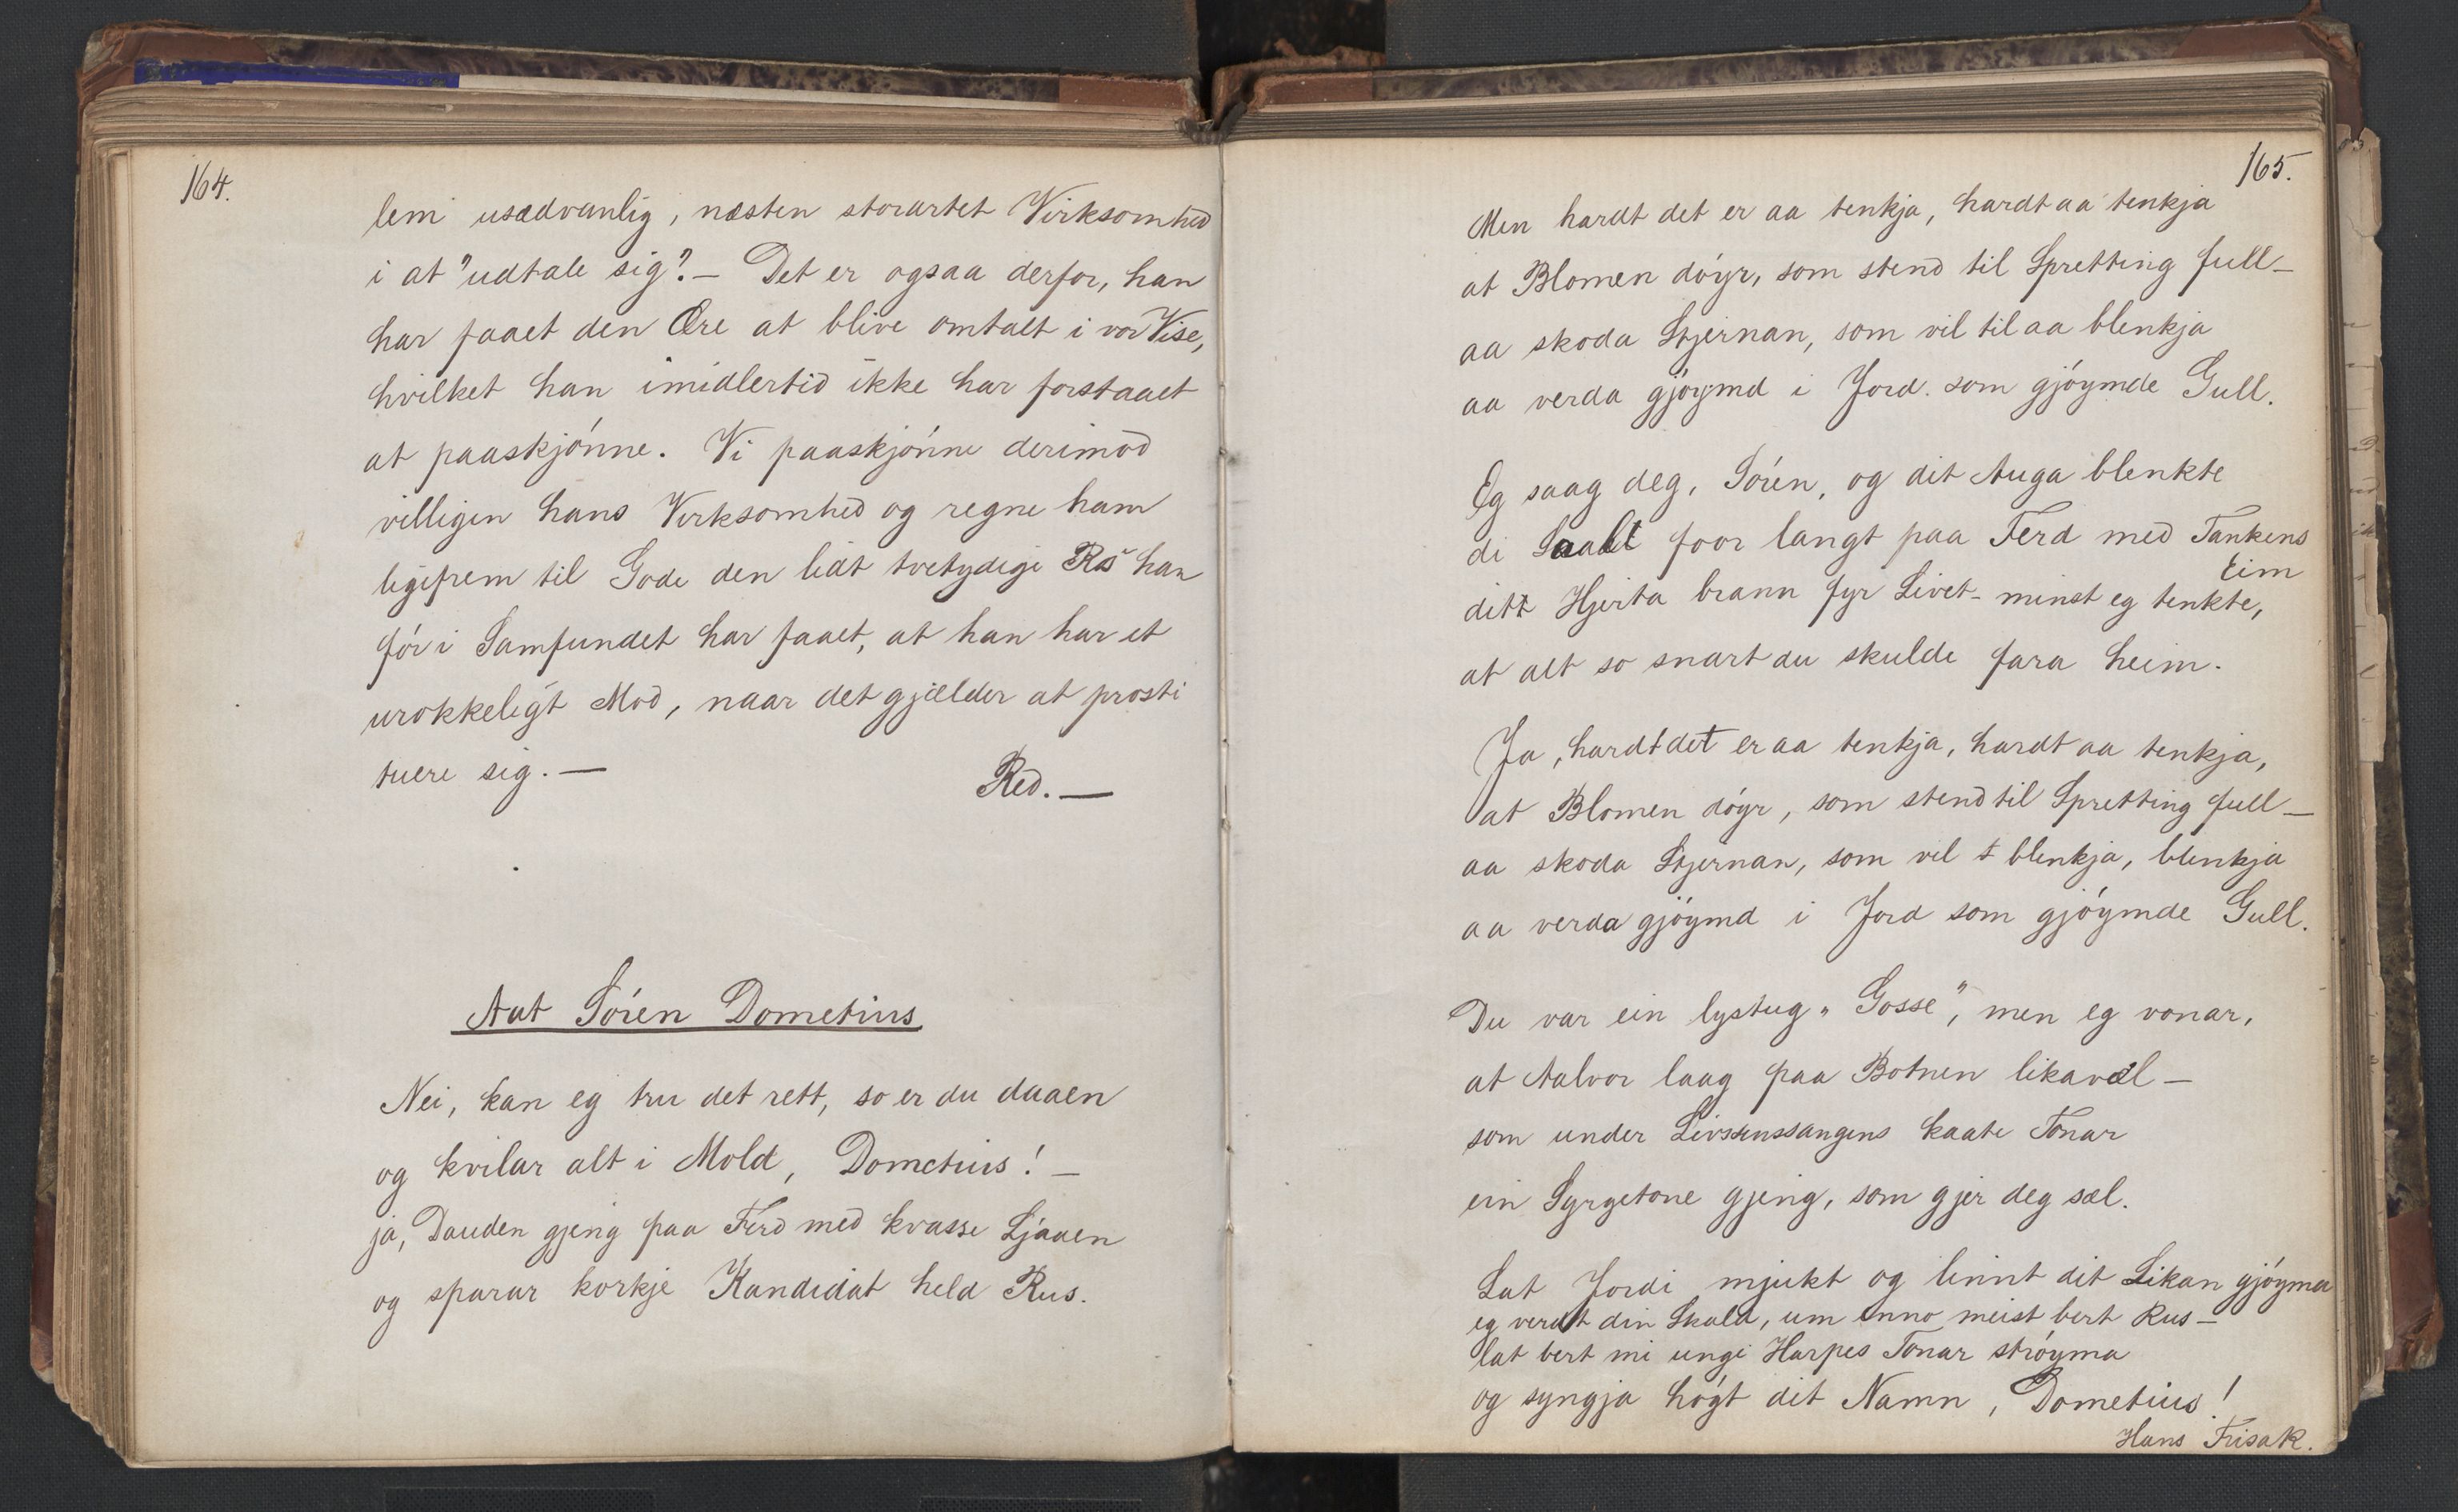 164.
lem usædvanlig, næsten storartet Virksomhed
i at "udtale sig"? — Det er ogsaa derfor, han
har faaet den Ære at blive omtalt i vor Vise,
hvilket han imidlertid ikke har forstaaet
at paaskjónne. Vi paaskjónne derimod
villigen hans Virksomhed og regne ham
ligefrem til Gode den lidt tvetydige Ros han
fór i Samfundet har faaet, at han har et
urokkeligt Mod, naar det gjælder at prosti
tuere sig. —
Red. —
Aat Sóren Dometius
Nei, kan eg tru det rett, so er du daaen
og kvilar alt i Mold, Dometius! —
ja, Dauden gjeng paa Ferd med kvasse Ljaaen
og sparar korkje Kandidat held Rus.
165.
Men hardt det er aa tenkja, hardt aa tenkja
at Blomen dóyr, som stend til Spretting full —
aa skoda Stjernan, som vil til aa blenkja
aa verda gjóymd i Jord. som gjóymde Gull.
Eg saag deg, Sóren, og dit Auga blenkte
di Saal foor langt paa Ferd med Tankens
Eim
ditt Hjerta brann fyr Livet - minst eg tenkte,
at alt so snart du skulde fara heim.
Ja, hardt det er aa tenkja, hardt aa tenkja,
at Blomen dóyr, som stend til Spretting full —
aa skoda Stjernan, som vil t blenkja, blenkja
aa verda gjóymd i Jord som gjóymde Gull.
Du var ein lystug „Gosse", men eg vonar,
at Aalvor laag paa Botnen likavæl —
som under Livssenssangens kaate Tonar
ein Syrgetone gjeng, som gjer deg sæl.
Lat Jordi mjukt og linnt dit Likan gjóyma
eg verdt din Skald, um enno meist bert Rus —
lat bert mi unge Harpes Tonar stróyma
og syngja hógt dit Namn, Dometius!
Hans Frisak.